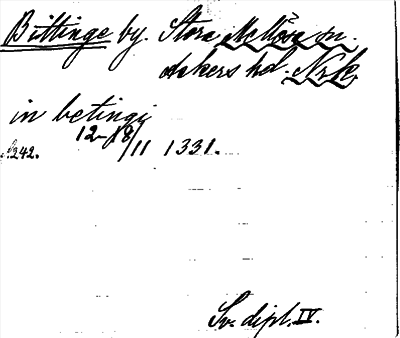 Bittinge by. Stora Mellösa sn.
Askers hd. Nrk.
in betingi
12-18/11 1331.
s. 242.
Sv. dipl. IV.